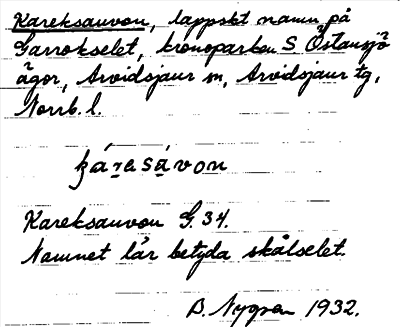 Kareksauvon, lappskt namn på
Garrokselet, kronoparken S Östansjö
ägor, Arvidsjaur sn, Arvidsjaur tg,
Norrb. l.
Kareksauvon G. 34.
Namnet lär betyda skålselet.
B. Nygren 1932.